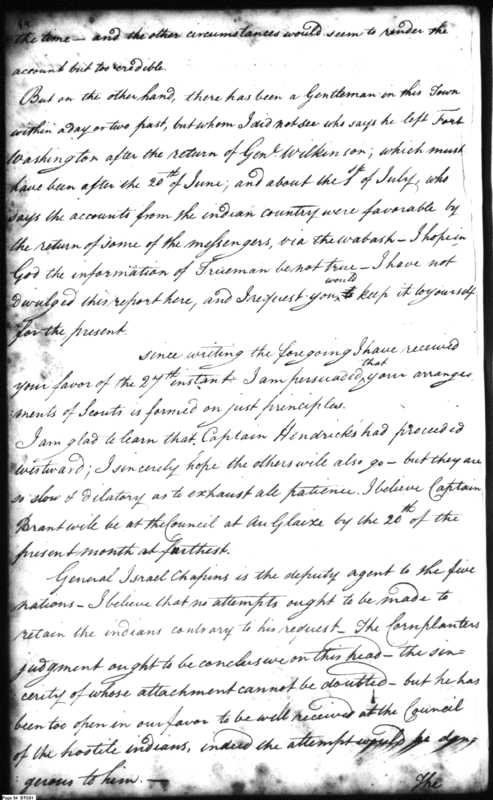 the time – and the other circumstances would seem to render the
account but too credible.
But on the other hand, there has been a Gentleman in this Town
within a day or two past, but whom I did not see who says he left Fort
Washington after the return of Genl. Wilkinson; which must
have been after the 20th of June; and about the 1st of July, who
says the accounts from the indian country were favorable by
the return of some of the messengers, via the wabash – I hope in
God the information of Freeman be not true – I have not
divulged this report here, and I request you would keep it to yourself
for the present.
since writing the foregoing I have received
your favor of the 27th instant I am persuaded that your arrange
ments of Scouts is formed on just principles.
I am glad to learn that Captain Hendricks had proceeded
westward; I sincerely hope the others will also go – but they are
so slow & dilatory as to exhaust all patience. I believe Captain
Brant will be at the Council at Au Glaize by the 20th of the
present month at farthest.
General Israel Chapins is the deputy agent to the five
nations – I believe that no attempts ought to be made to
retain the indians contrary to his request – The Cornplanters
judgment ought to be conclusive on this head – the sin=
cerity of whose attachment cannot be doubted – but he has
been too open in our favor to be well received at the Council
of the hostile indians, indeed the attempt would be dan=
gerous to him. —
The
Page 54 BTC01